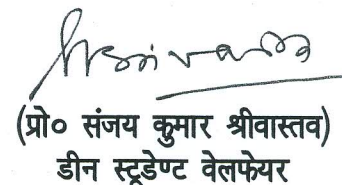 (प्रो० संजय कुमार श्रीवास्तव)
डीन स्टूडेण्ट वेलफेयर